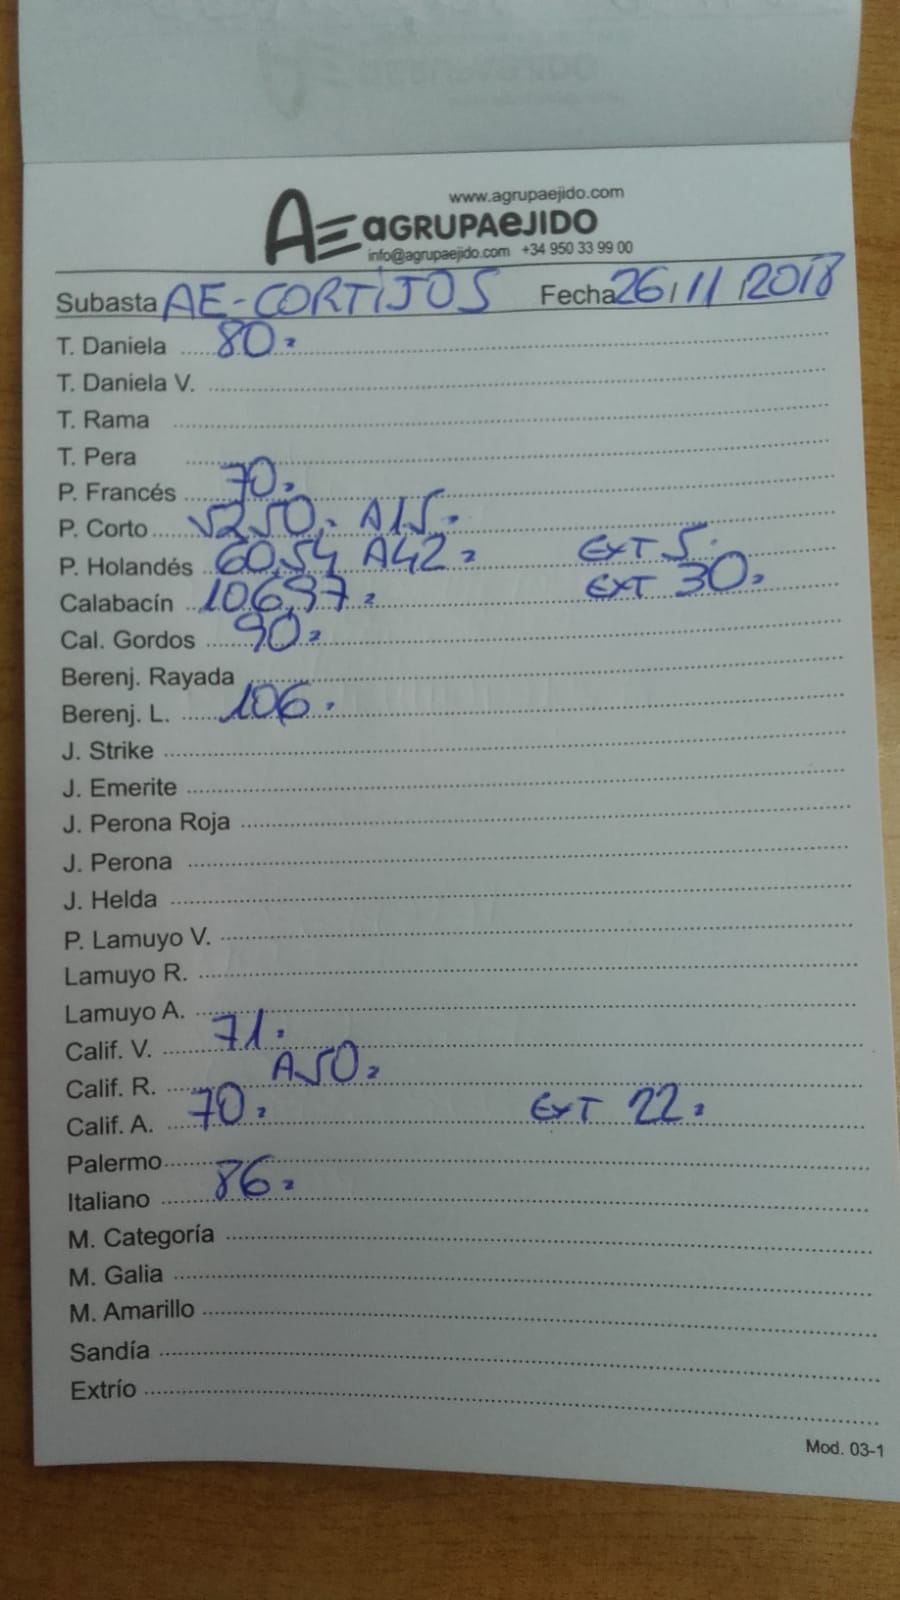 www.agrupaejido.com
AE aGRUPAeJIDO
info@agrupaejido.com +34 950 33 99 00
Subasta AE-CORTIJOS Fecha 26/11/2018
T. Daniela 80.
T. Daniela V.
T. Rama
T. Pera
P. Francés 70.
P. Corto 5250. A15.
P. Holandés 60,54 A42. EXT 5.
Calabacín 106,97. EXT 30.
Cal. Gordos 90.
Berenj. Rayada
Berenj. L. 106.
J. Strike
J. Emerite
J. Perona Roja
J. Perona
J. Helda
P. Lamuyo V.
Lamuyo R.
Lamuyo A.
Calif. V. 71.
Calif. R. A50.
Calif. A. 70. EXT 22.
Palermo
Italiano 86.
M. Categoría
M. Galia
M. Amarillo
Sandía
Extrío
Mod. 03-1